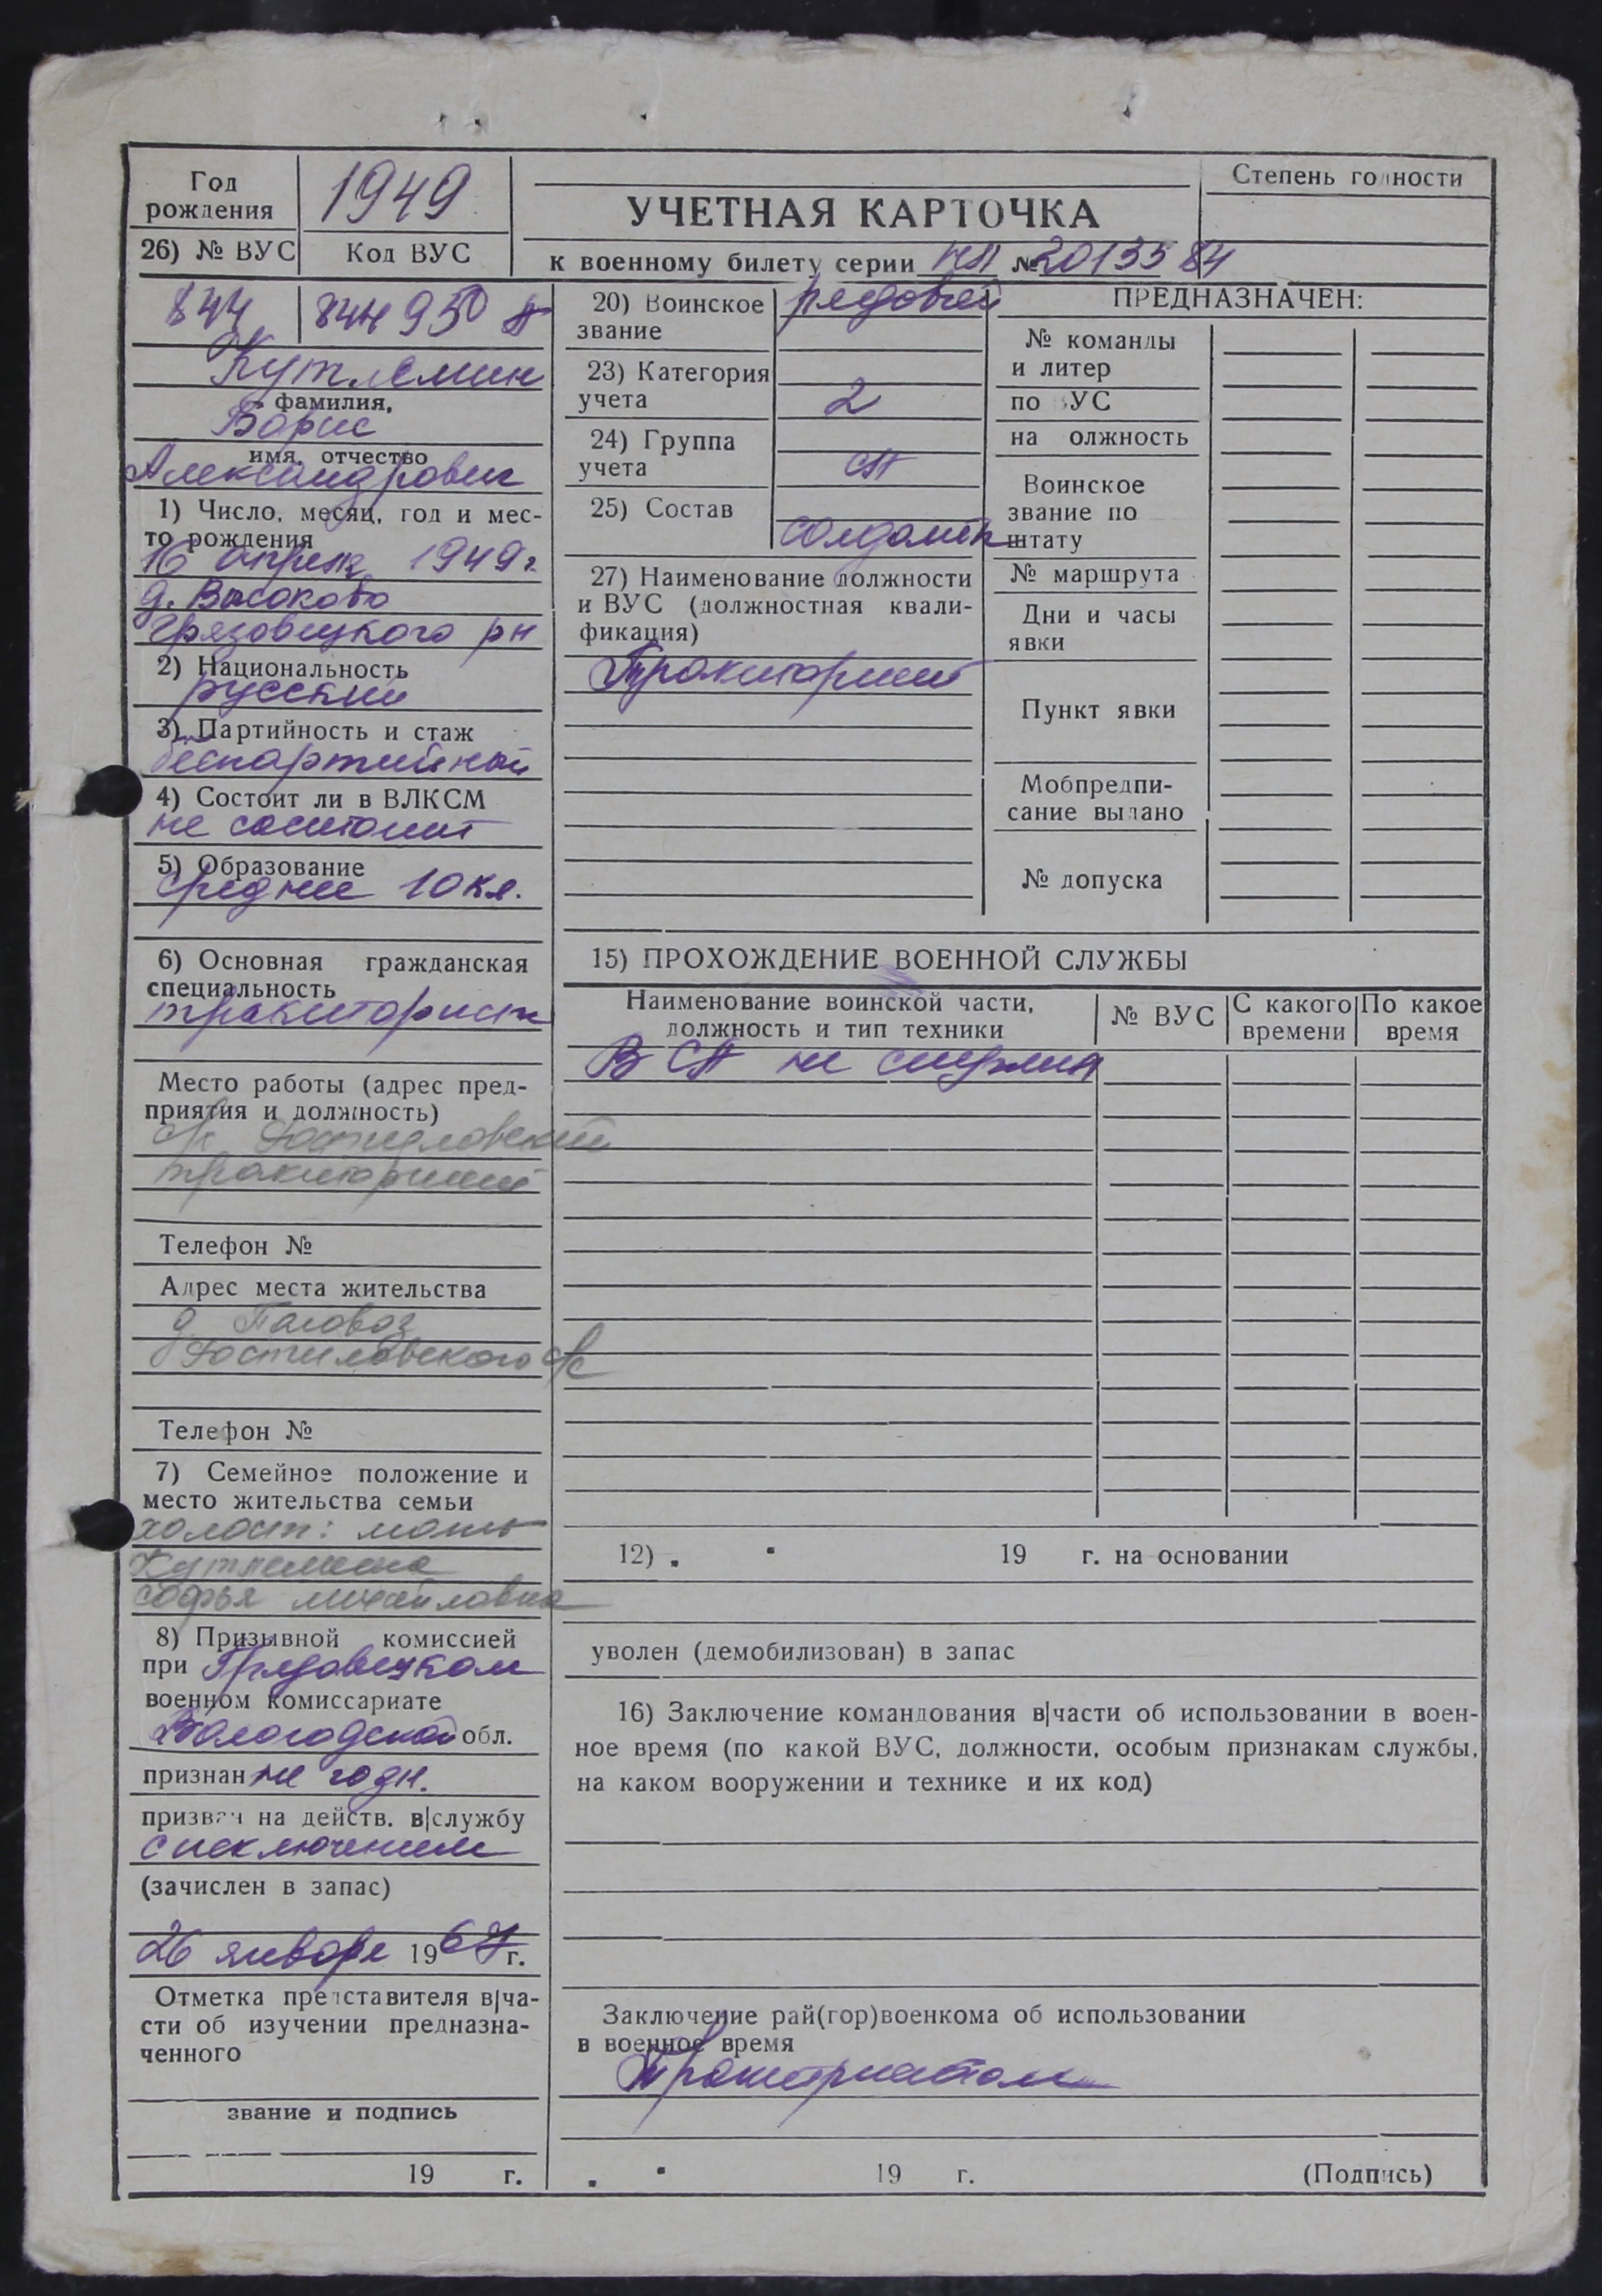 Год рождения
1949
26) № ВУС
Код ВУС
УЧЕТНАЯ КАРТОЧКА
к военному билету серии НЛ № 2013584
Степень годности
844
844 950 А
Кутлемин
фамилия,
Борис
имя, отчество
Александрович
1) Число, месяц, год и мес-
то рождения
16 апреля 1949 г
д. Высоково
Грязовецкого рн
2) Национальность
русский
3) Партийность и стаж
беспартийный
4) Состоит ли в ВЛКСМ
не состоит
5) Образование
среднее 10 кл.
6) Основная гражданская
специальность
тракторист
Место работы (адрес пред-
приятия и должность)
тракторист
Телефон №
Адрес места жительства
д.
Ростиловского с/с
Телефон №
7) Семейное положение и
место жительства семьи
холост: мать
Кутлемина
софья михайловна
8) Призывной комиссией
при Грязовецком
военном комиссариате
Вологодской обл.
признан не годн.
призван на действ. в|службу
с исключением
(зачислен в запас)
26 января 1967 г.
Отметка представителя в|ча-
сти об изучении предназна-
ченного
звание и подпись
19 г.
20) Воинское
звание
рядовой
23) Категория
учета
2
24) Группа
учета
СА
25) Состав
солдаты
27) Наименование должности
и ВУС (должностная квали-
фикация)
Тракторист
ПРЕДНАЗНАЧЕН:
№ команды
и литер
по ВУС
на должность
Воинское
звание по
штату
№ маршрута
Дни и часы
явки
Пункт явки
Мобпредпи-
сание выдано
№ допуска
15) ПРОХОЖДЕНИЕ ВОЕННОЙ СЛУЖБЫ
Наименование воинской части,
должность и тип техники
№ ВУС
С какого
времени
По какое
время
В СА не служил
12) " " 19 г. на основании
уволен (демобилизован) в запас
16) Заключение командования в|части об использовании в воен-
ное время (по какой ВУС, должности, особым признакам службы,
на каком вооружении и технике и их код)
Заключение рай(гор)военкома об использовании
в военное время
Трактористом
" " 19 г.
(Подпись)